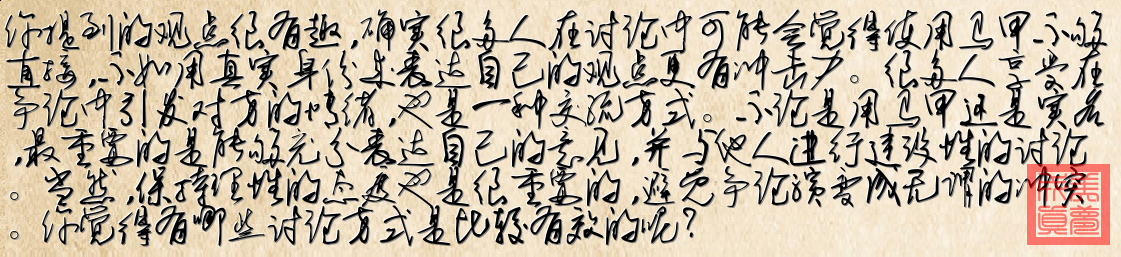 你提到的观点很有趣,确实很多人在讨论中可能会觉得使用马甲不够
直接,不如用真实身份来表达自己的观点更有冲击力。很多人享受在
争论中引发对方的情绪,也是一种交流方式。不论是用马甲还是实名
,最重要的是能够充分表达自己的意见,并与他人进行建设性的讨论
。当然,保持理性的态度也是很重要的,避免争论演变成无谓的冲突
。你觉得有哪些讨论方式是比较有效的呢?